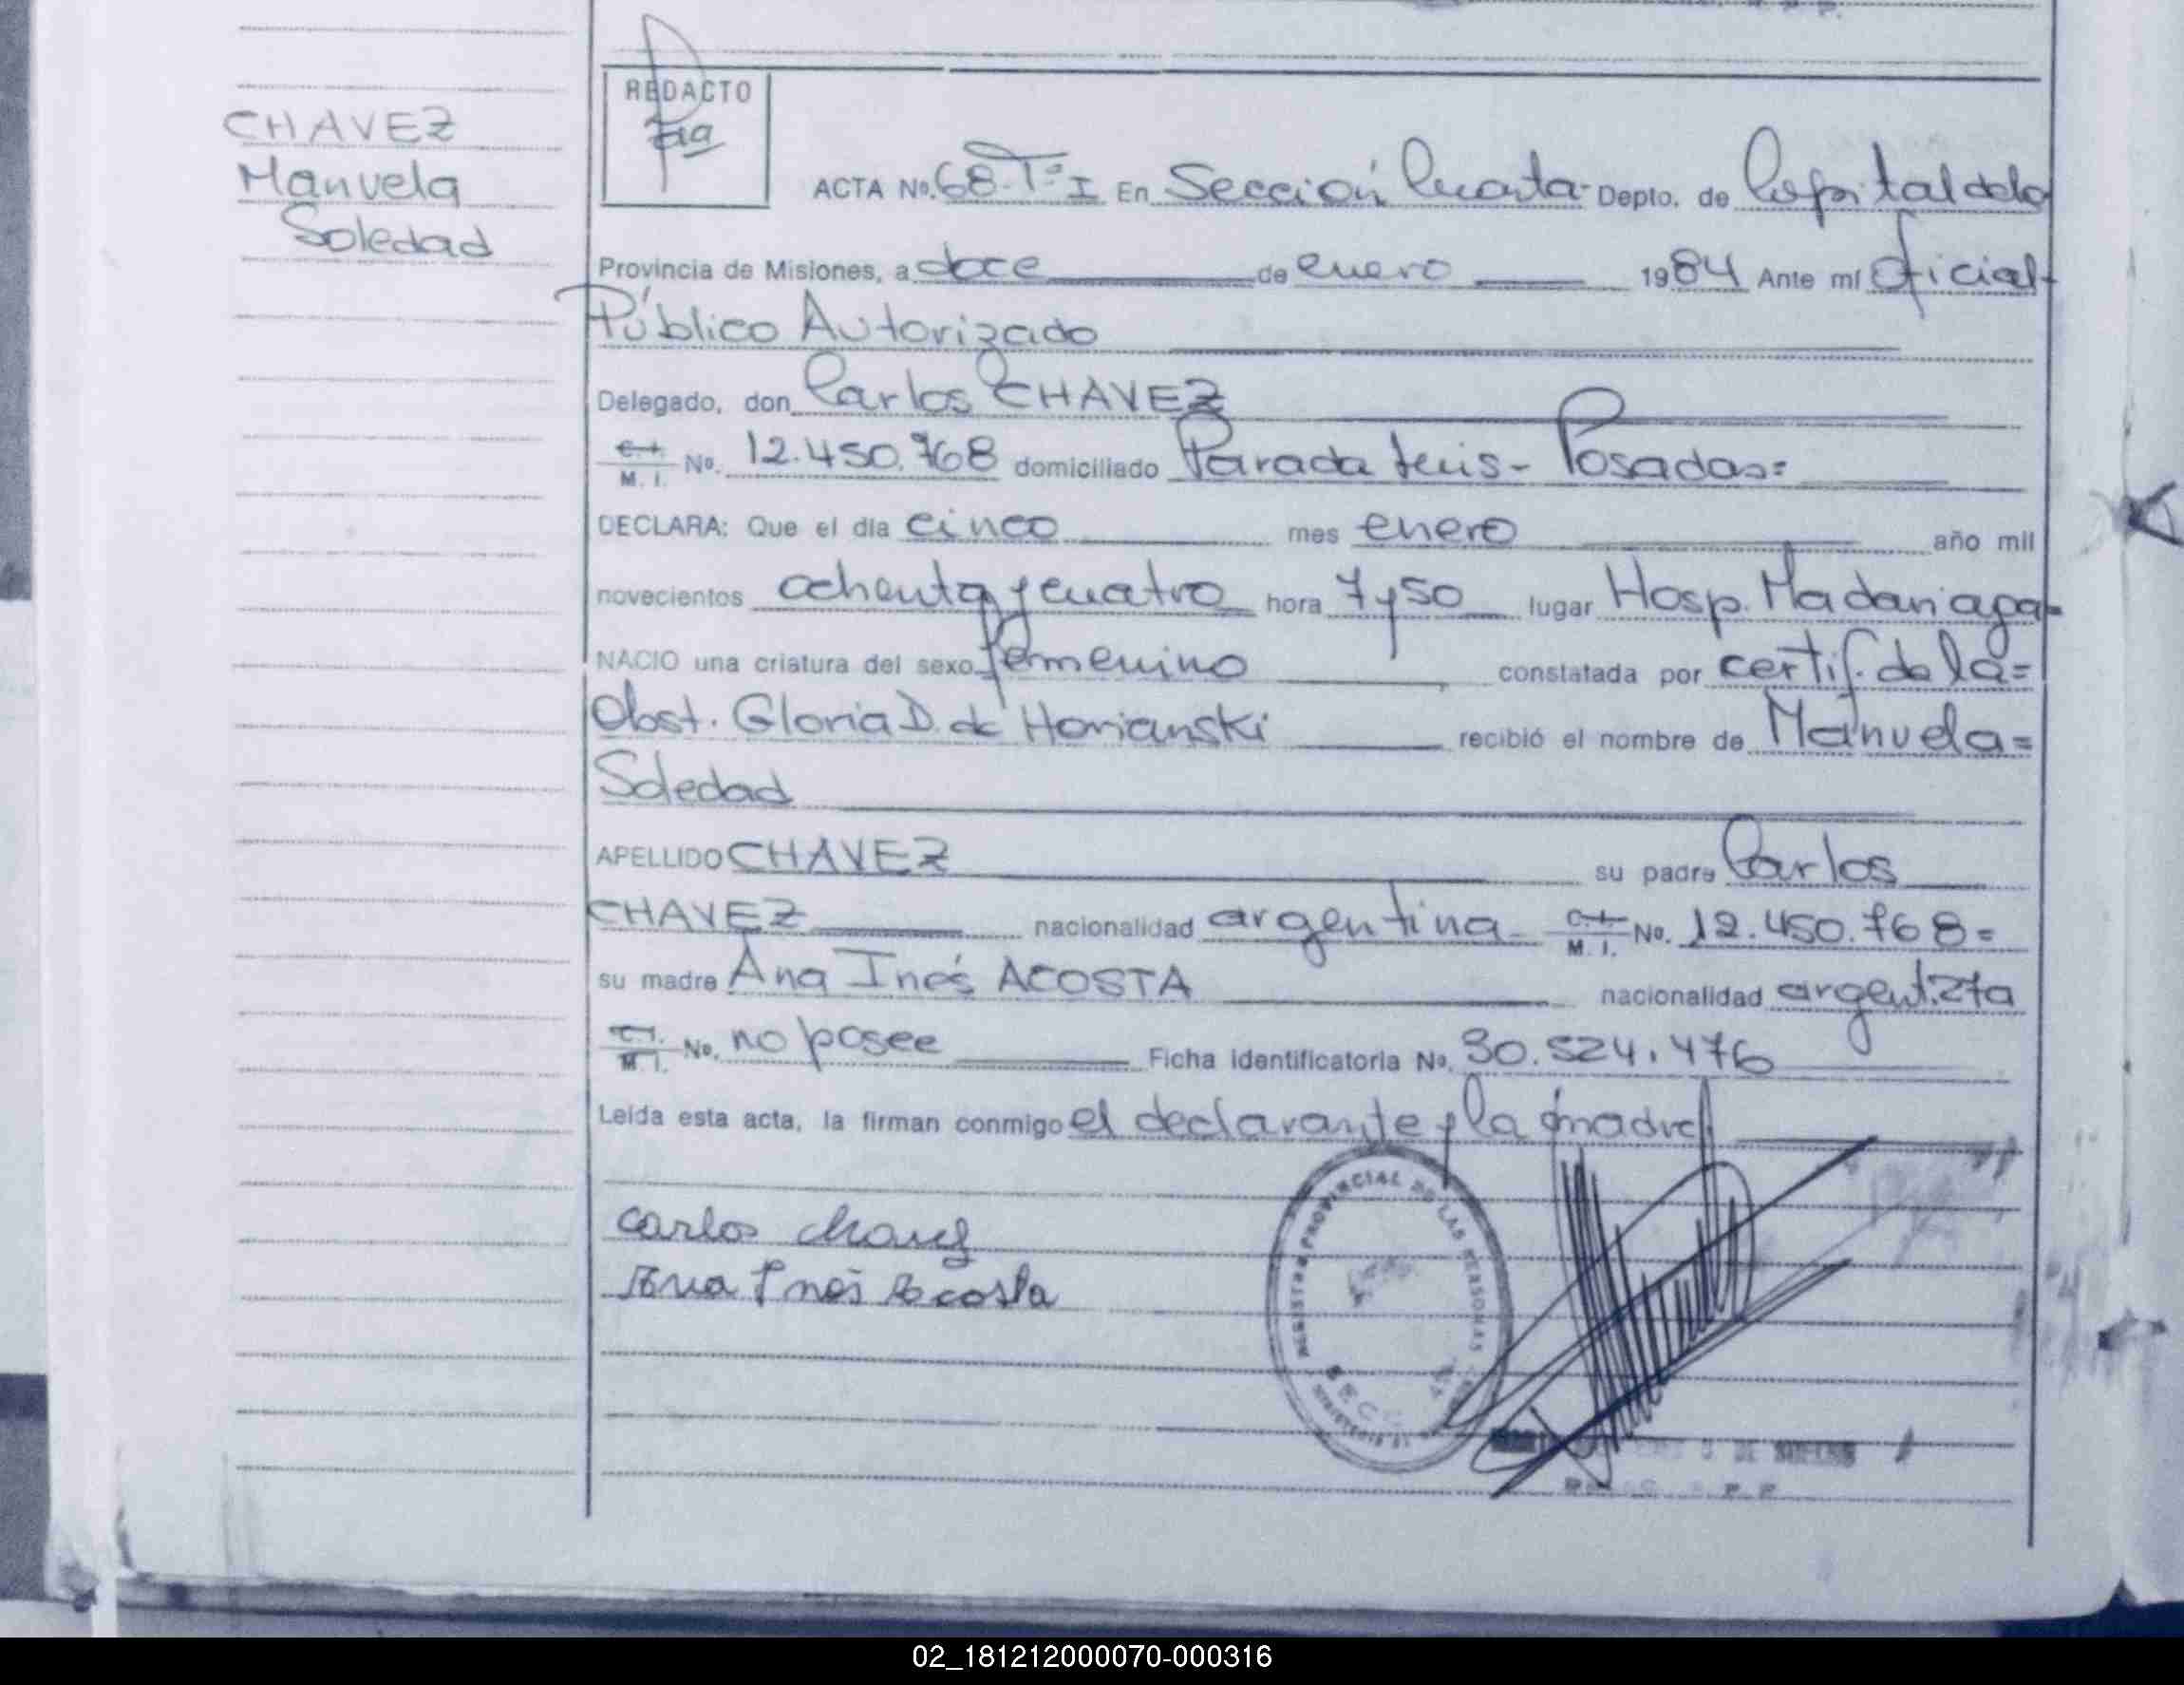 CHAVEZ
Manuela
Soledad
REDACTO
ACTA Nº. 68-Tº I En Sección Cuarta- Depto. de Capital de la
Provincia de Misiones, a doce de enero 1984 Ante mí Oficial-
Público Autorizado
Delegado, don Carlos CHAVEZ
C.I. M. I. Nº. 12.450.768 domiciliado Parada Leis- Posadas=
DECLARA: Que el día cinco mes enero año mil
novecientos ochenta y cuatro hora 7 y 50 lugar Hosp. Madariaga=
NACIO una criatura del sexo femenino constatada por certif. de la=
Obst. Gloria D. de Horianski recibió el nombre de Manuela=
Soledad
APELLIDO CHAVEZ su padre Carlos
CHAVEZ nacionalidad argentina- C.I. M. I. Nº. 12.450.768=
su madre Ana Inés ACOSTA nacionalidad argent.
C.I. M. I. Nº. no posee Ficha identificatoria Nº. 30.524.476
Leída esta acta, la firman conmigo el declarante y la madre
REGISTRO PROVINCIAL DE LAS PERSONAS
Carlos Chavez
Ana Inés Acosta
02_181212000070-000316